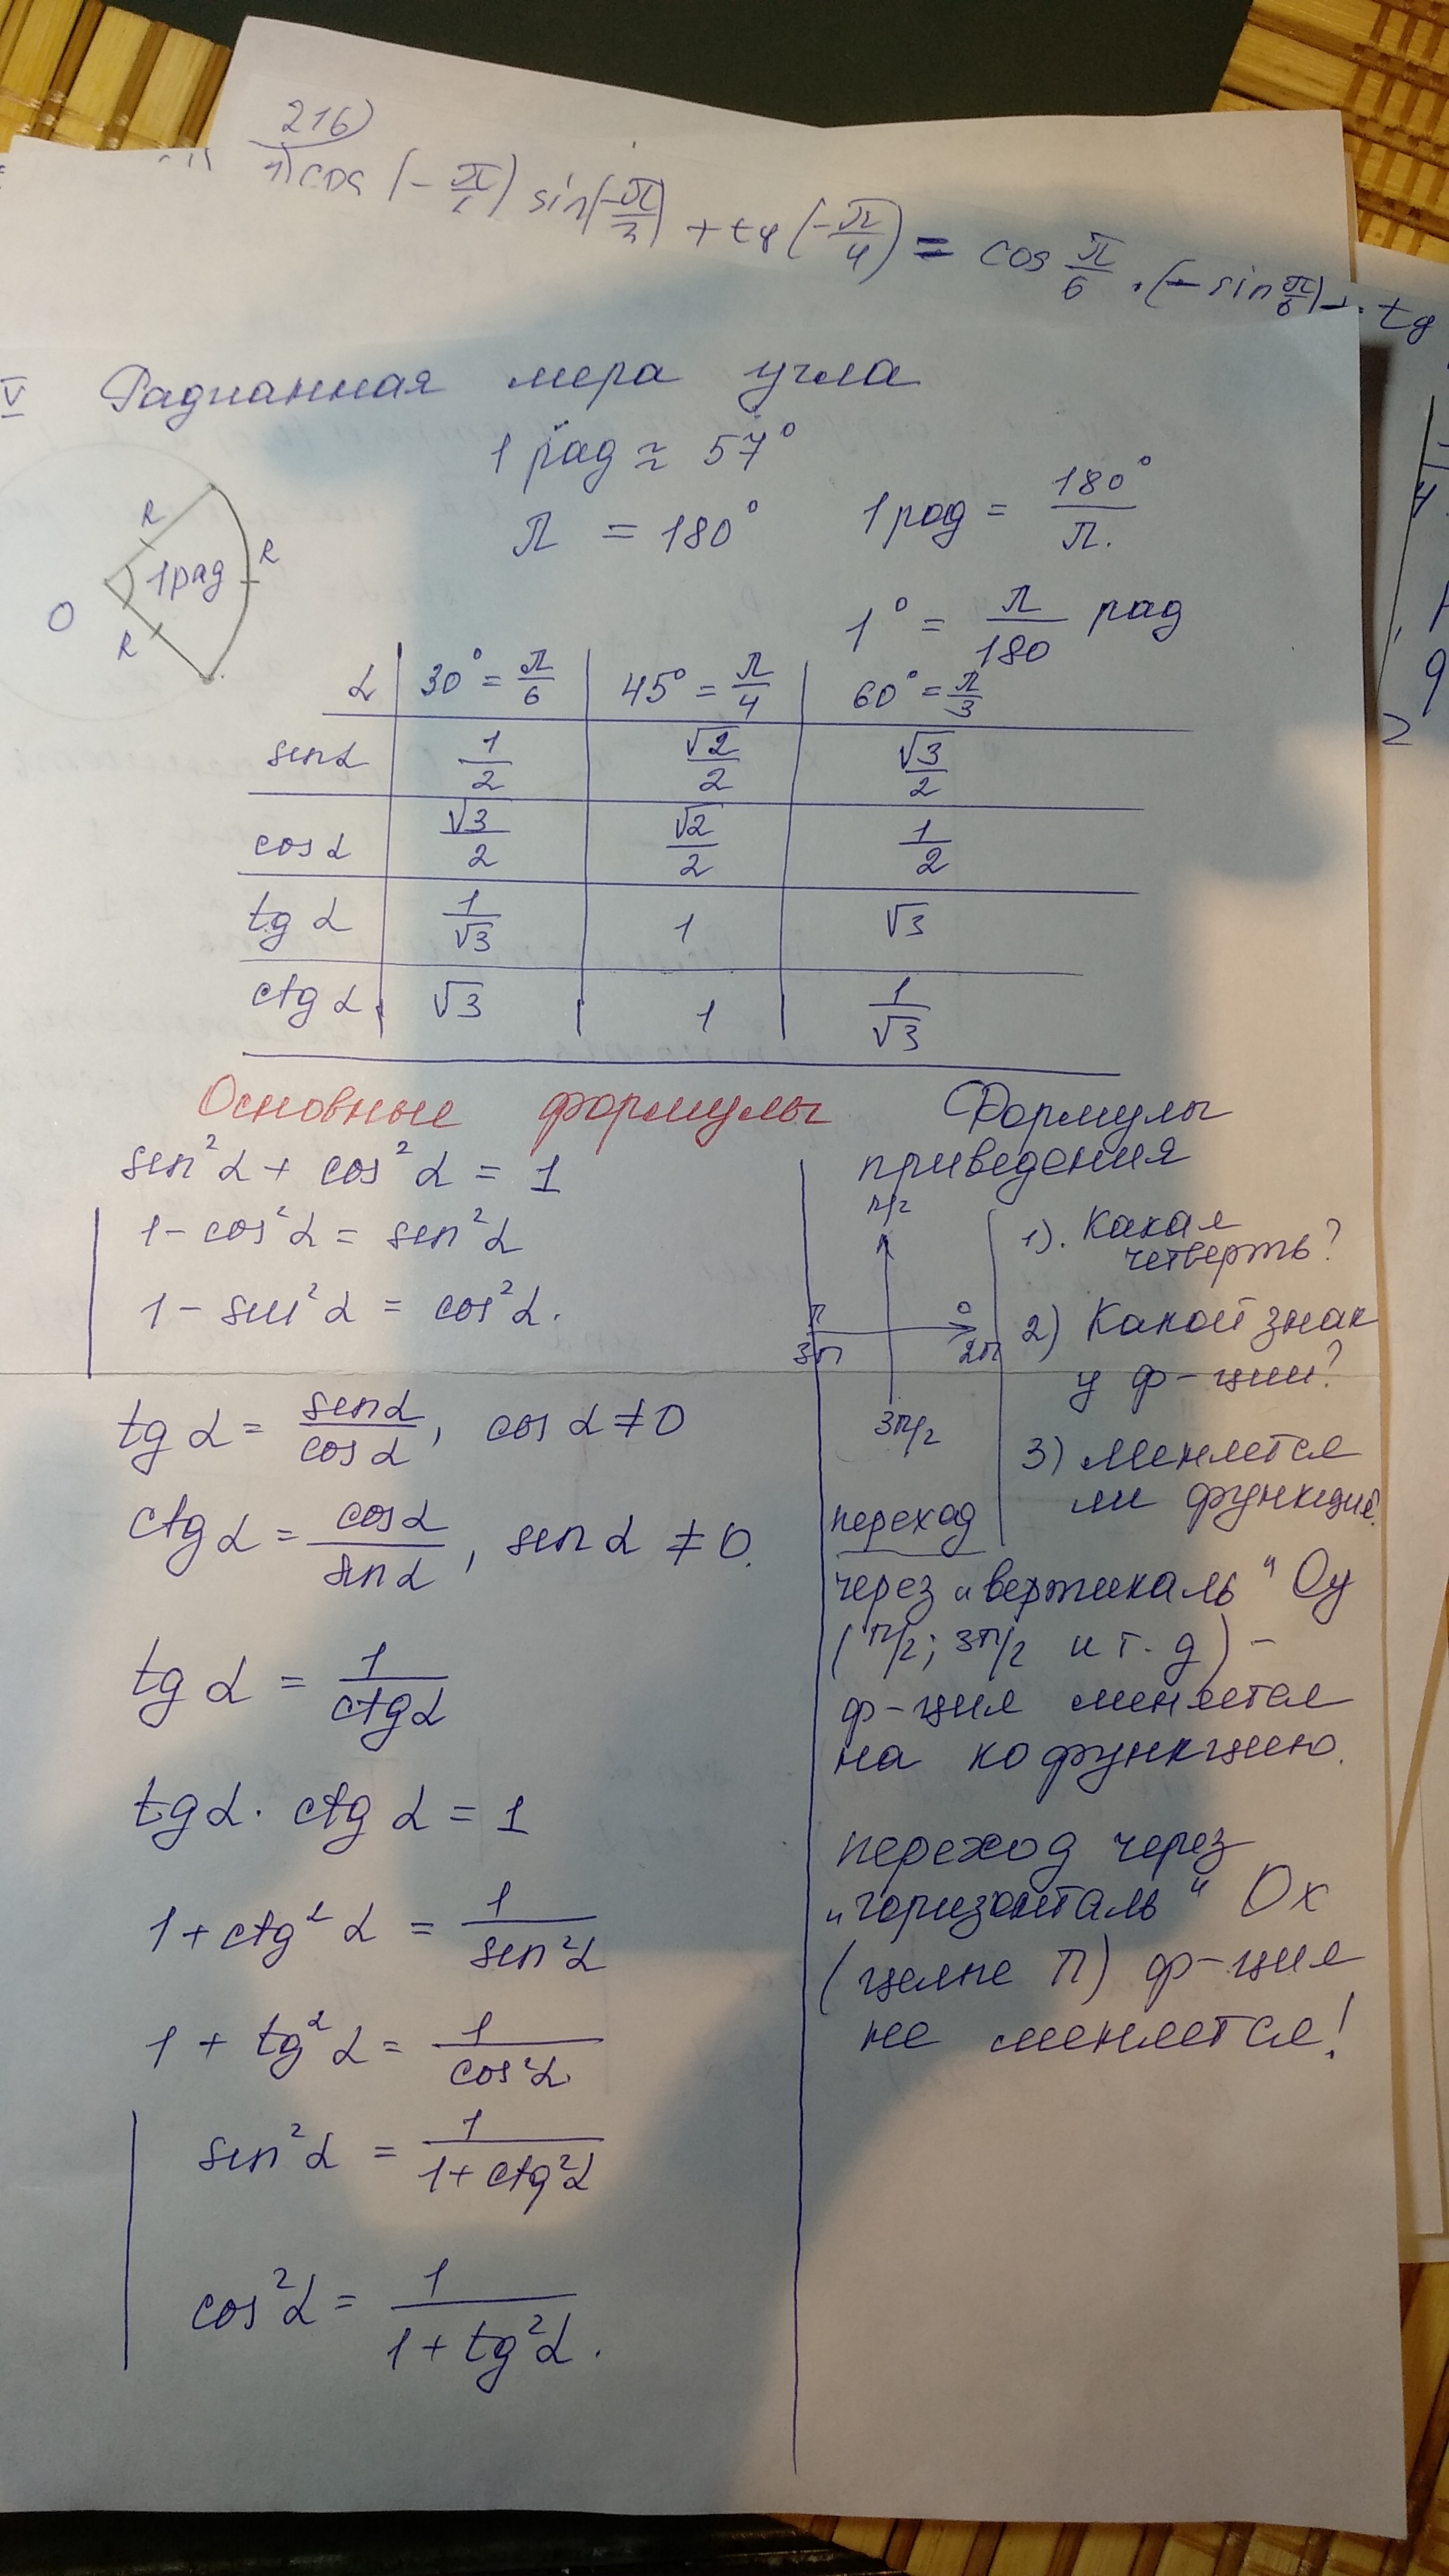 216)
1) cos (-π/6) sin(-π/3) + tg (-π/4) = cos π/6 · (- sin π/6) - tg
V Радианная мера угла
1 рад ≈ 57°
π = 180°
1 рад = 180°/π.
1° = π/180 рад
R
R
1 рад
O
R
α | 30° = π/6 | 45° = π/4 | 60° = π/3
sin α | 1/2 | √2/2 | √3/2
cos α | √3/2 | √2/2 | 1/2
tg α | 1/√3 | 1 | √3
ctg α | √3 | 1 | 1/√3
Основные формулы
sin²α + cos²α = 1
1 - cos²α = sin²α
1 - sin²α = cos²α.
tg α = sin α/cos α, cos α ≠ 0
ctg α = cos α/sin α, sin α ≠ 0.
tg α = 1/ctg α
tg α · ctg α = 1
1 + ctg²α = 1/sin²α
1 + tg²α = 1/cos²α
sin²α = 1/(1 + ctg²α)
cos²α = 1/(1 + tg²α).
Формулы
приведения
π/2
π
3π
0
2π
3π/2
1). Какая
четверть?
2) Какой знак
у ф-ции?
3) меняется
ли функция?
переход
через "вертикаль" Oy
(π/2; 3π/2 и т. д) -
ф-ция меняется
на кофункцию.
переход через
"горизонталь" Ox
(целые π) ф-ция
не меняется!